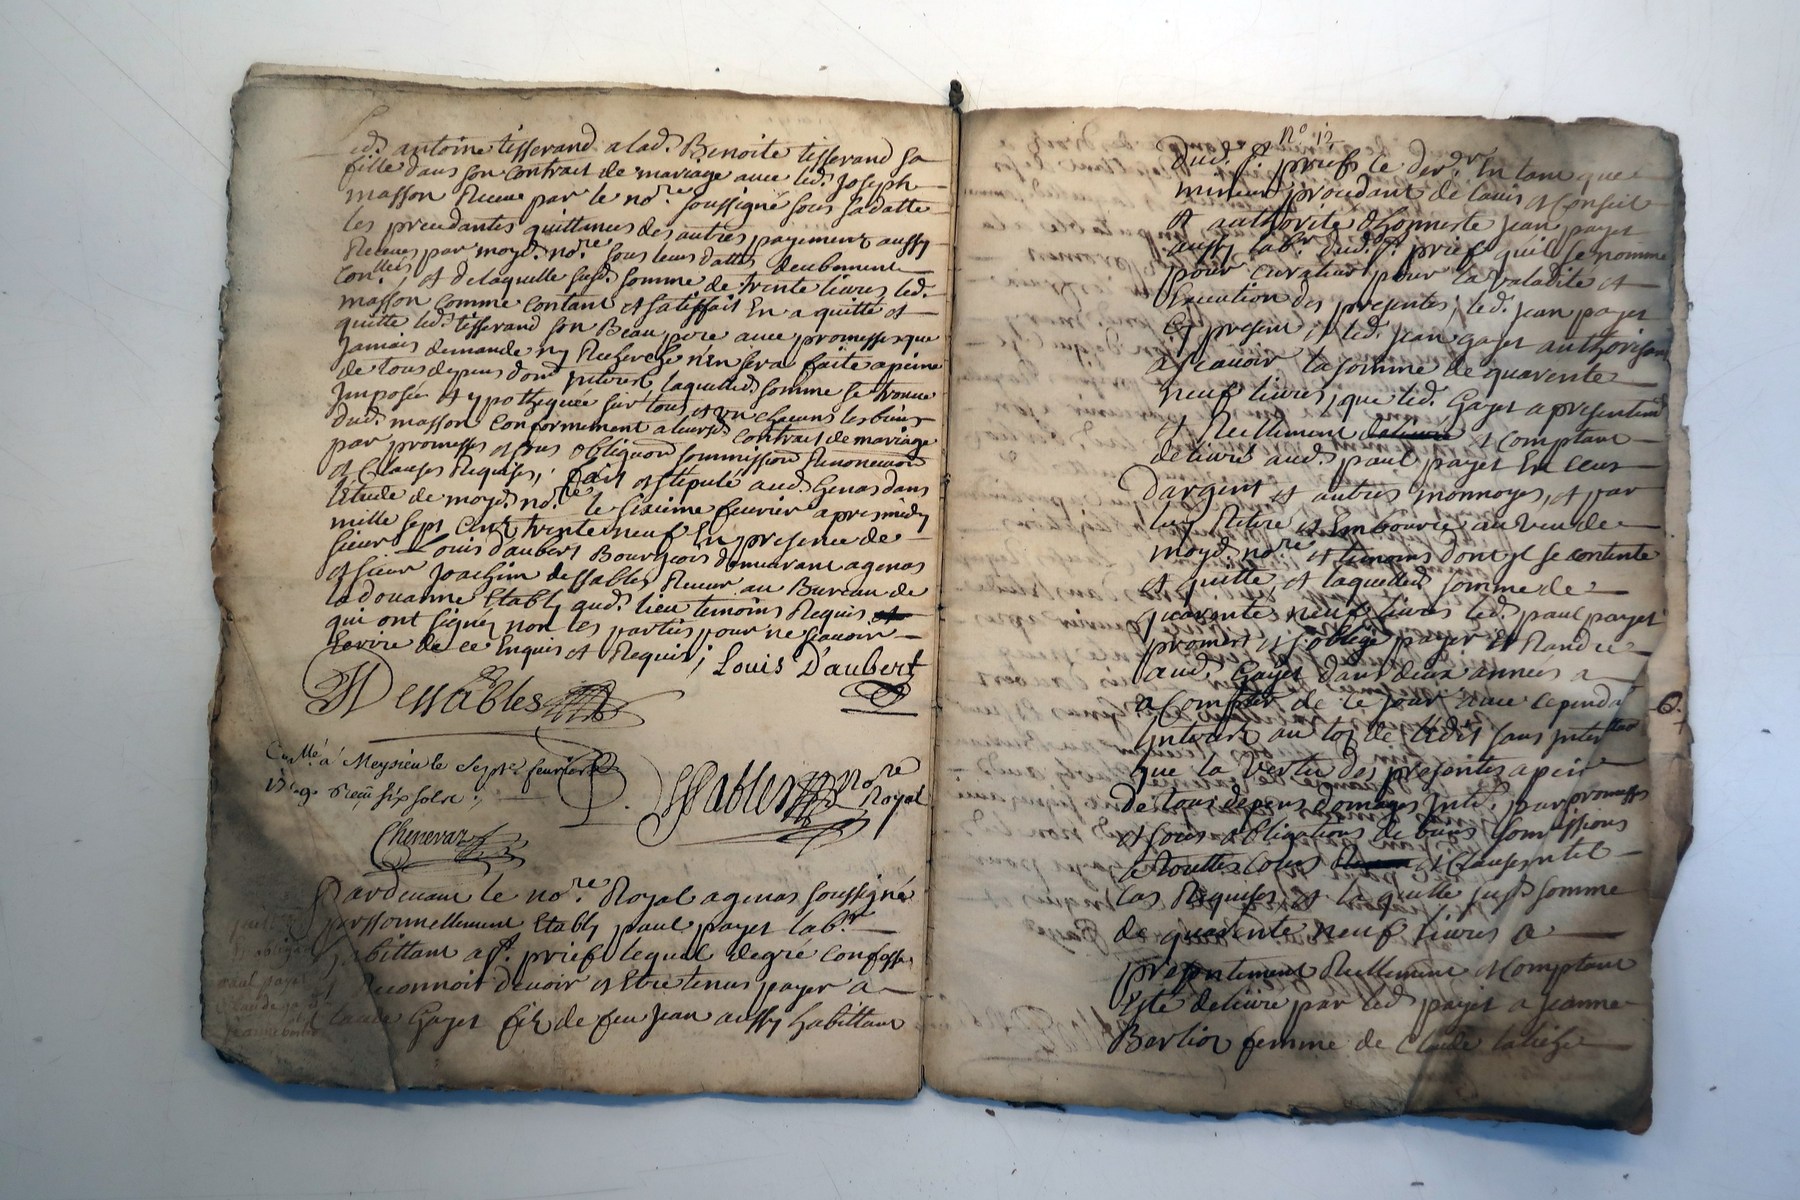 led. antoine tisserand a lad. Benoite tisserand sa
fille dans son contrait de mariage avec led. Joseph
masson Receue par le no.re soussigné sous sa datte
les precedantes quittances des autres payements aussy
Receues par moyd. no.re sous leurs dattes deubement
con.lées, et de laquelle susd. somme de trente livres led.
masson comme contant et satisfait En a quitté et
quitte led. tisserand son Beau pere avec promesses que
jamais demande ny Recherche n'en sera faite a peine
de tous depens dom. interest laquelled. somme se trouve
Imposée et ypothequée sur tous et un chacuns les biens
dud. masson conformement a leursd. contrait de mariage
par promesses et sous obligaon sommission Renonciaon
et Clauses Requises, fait et stipulé aud. Genas dans
l'Etude de moyd. no.re le sixieme feuvrier apres midy
mille sept Cent trente neuf En presence de
sieur Louis d'aubert Bourgeois demeurant a genas
et sieur Joachim dessables Receveur au Bureau de
la doüanne Etably aud. lieu temoins Requis et
qui ont signez non les parties pour ne sçavoir
Ecrire de ce Enquis et Requis; Louis D'aubert
J Dessables
Con.llé à Meysieu le Sept.e feuvrier
1739. Receu six sols
Dessables no.re Royal
Chenevaz
Pardevant le no.re Royal a genas soussigné
perssonnellement Etably paul payet lab.r
habittant a S.t prief lequel de gré confesse
et Reconnoit devoir et Etre tenus payer a
Claude Gayet fils de feu Jean aussy habittant
paul payet
Claude gayet
N.o 12
dud. S.t prief ce der.r En tant que
mineur procedant de l'avis et Conseil
et authorité d'honneste Jean payet
aussy lab.r dud. S.t prief qu'il se nomme
pour curateur pour la validité et
Execution des presentes, led. Jean payet
Cy present, et led. Jean gayet authorisant
a sçavoir la somme de quarente
neuf livres, que led. Gayet a presentement
et Reellement delivré et comptant
delivré aud. paul payet En Ecus
d'argent et autres monnoyes, et par
luy Retiré et Emboursé au veu de
moyd. no.re et temoins dont il se contente
et quitte, et laquelled. somme de
quarente neuf livres led. paul payet
promet et s'oblige payer et Randre
aud. Gayet dans deux années a
a Compter de ce jour avec cependt
jnterest au toz de l'Edit sans
que la vertu des presentes a peine
de tous depens domages Int.t par promesses
et sous obligations de biens somissions
et Clauses en tel
Cas Requises et la quelle susd. somme
de quarente neuf livres a
presentement Reellement et comptant
Esté delivré par led. payet a Jeanne
Berlioz femme de Claude
6.